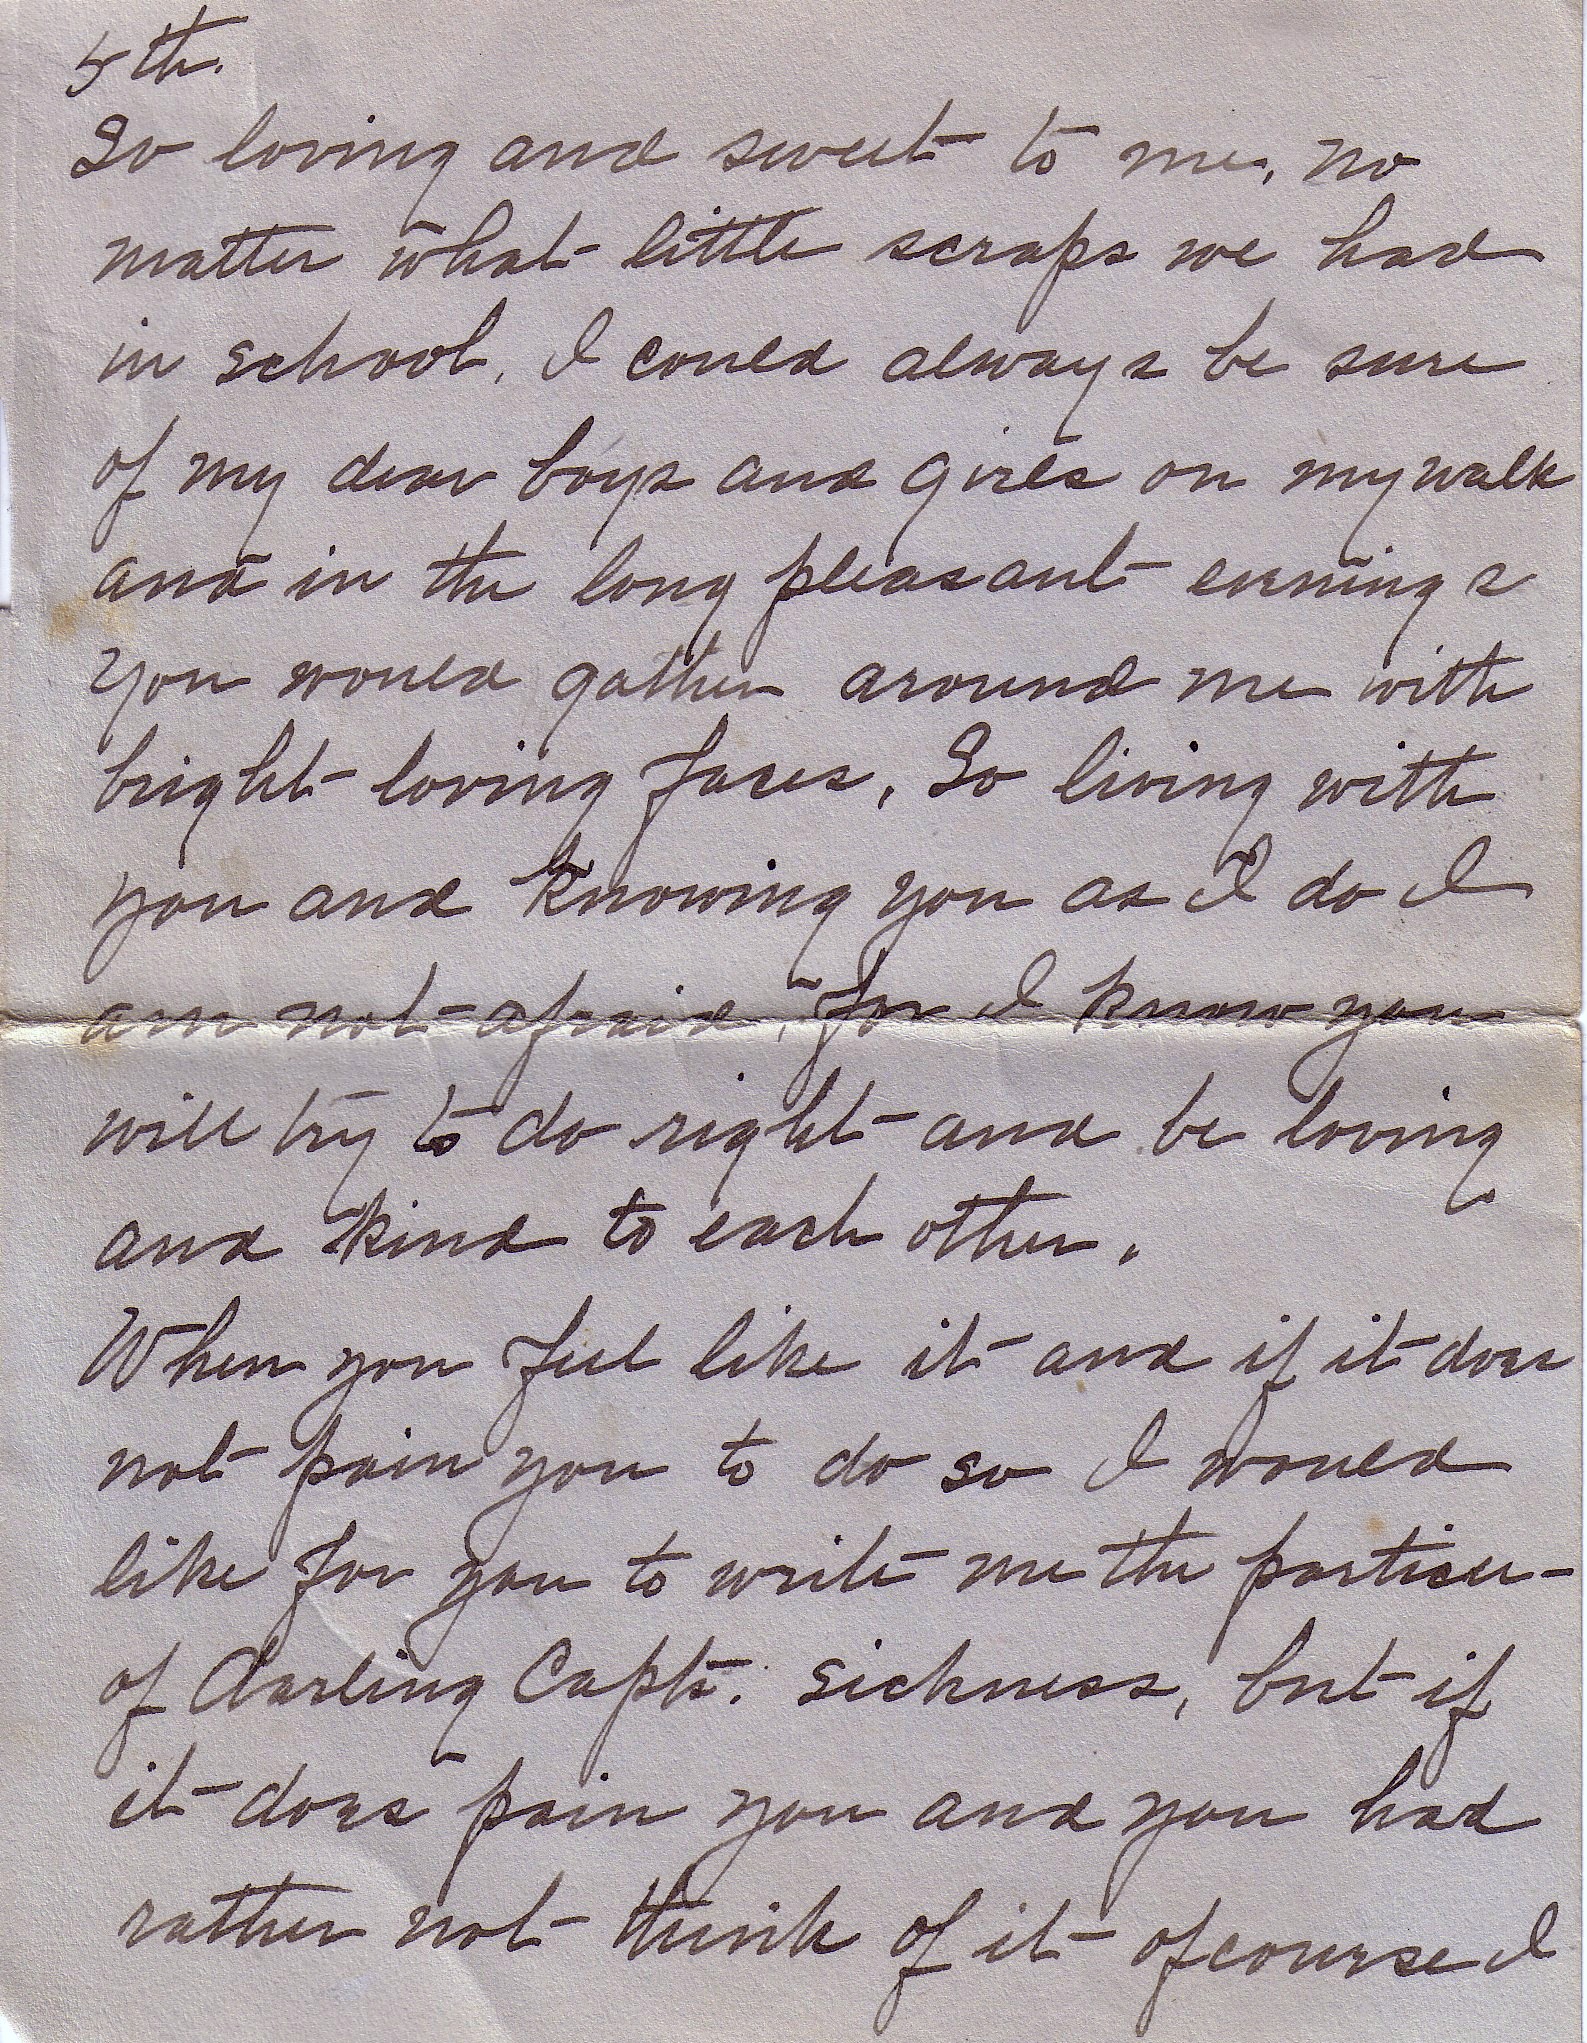 5th.
So loving and sweet to me, no
matter what little scraps we had
in school, I could always be sure
of my dear boys and girls on my walk
and in the long pleasant evenings
you would gather around me with
bright loving faces, So living with
you and knowing you as I do I
am not afraid, for I know you
will try to do right and be loving
and kind to each other.
When you feel like it and if it does
not pain you to do so I would
like for you to write me the particu-
of darling Capts. sickness, but if
it does pain you and you had
rather not think of it of course I